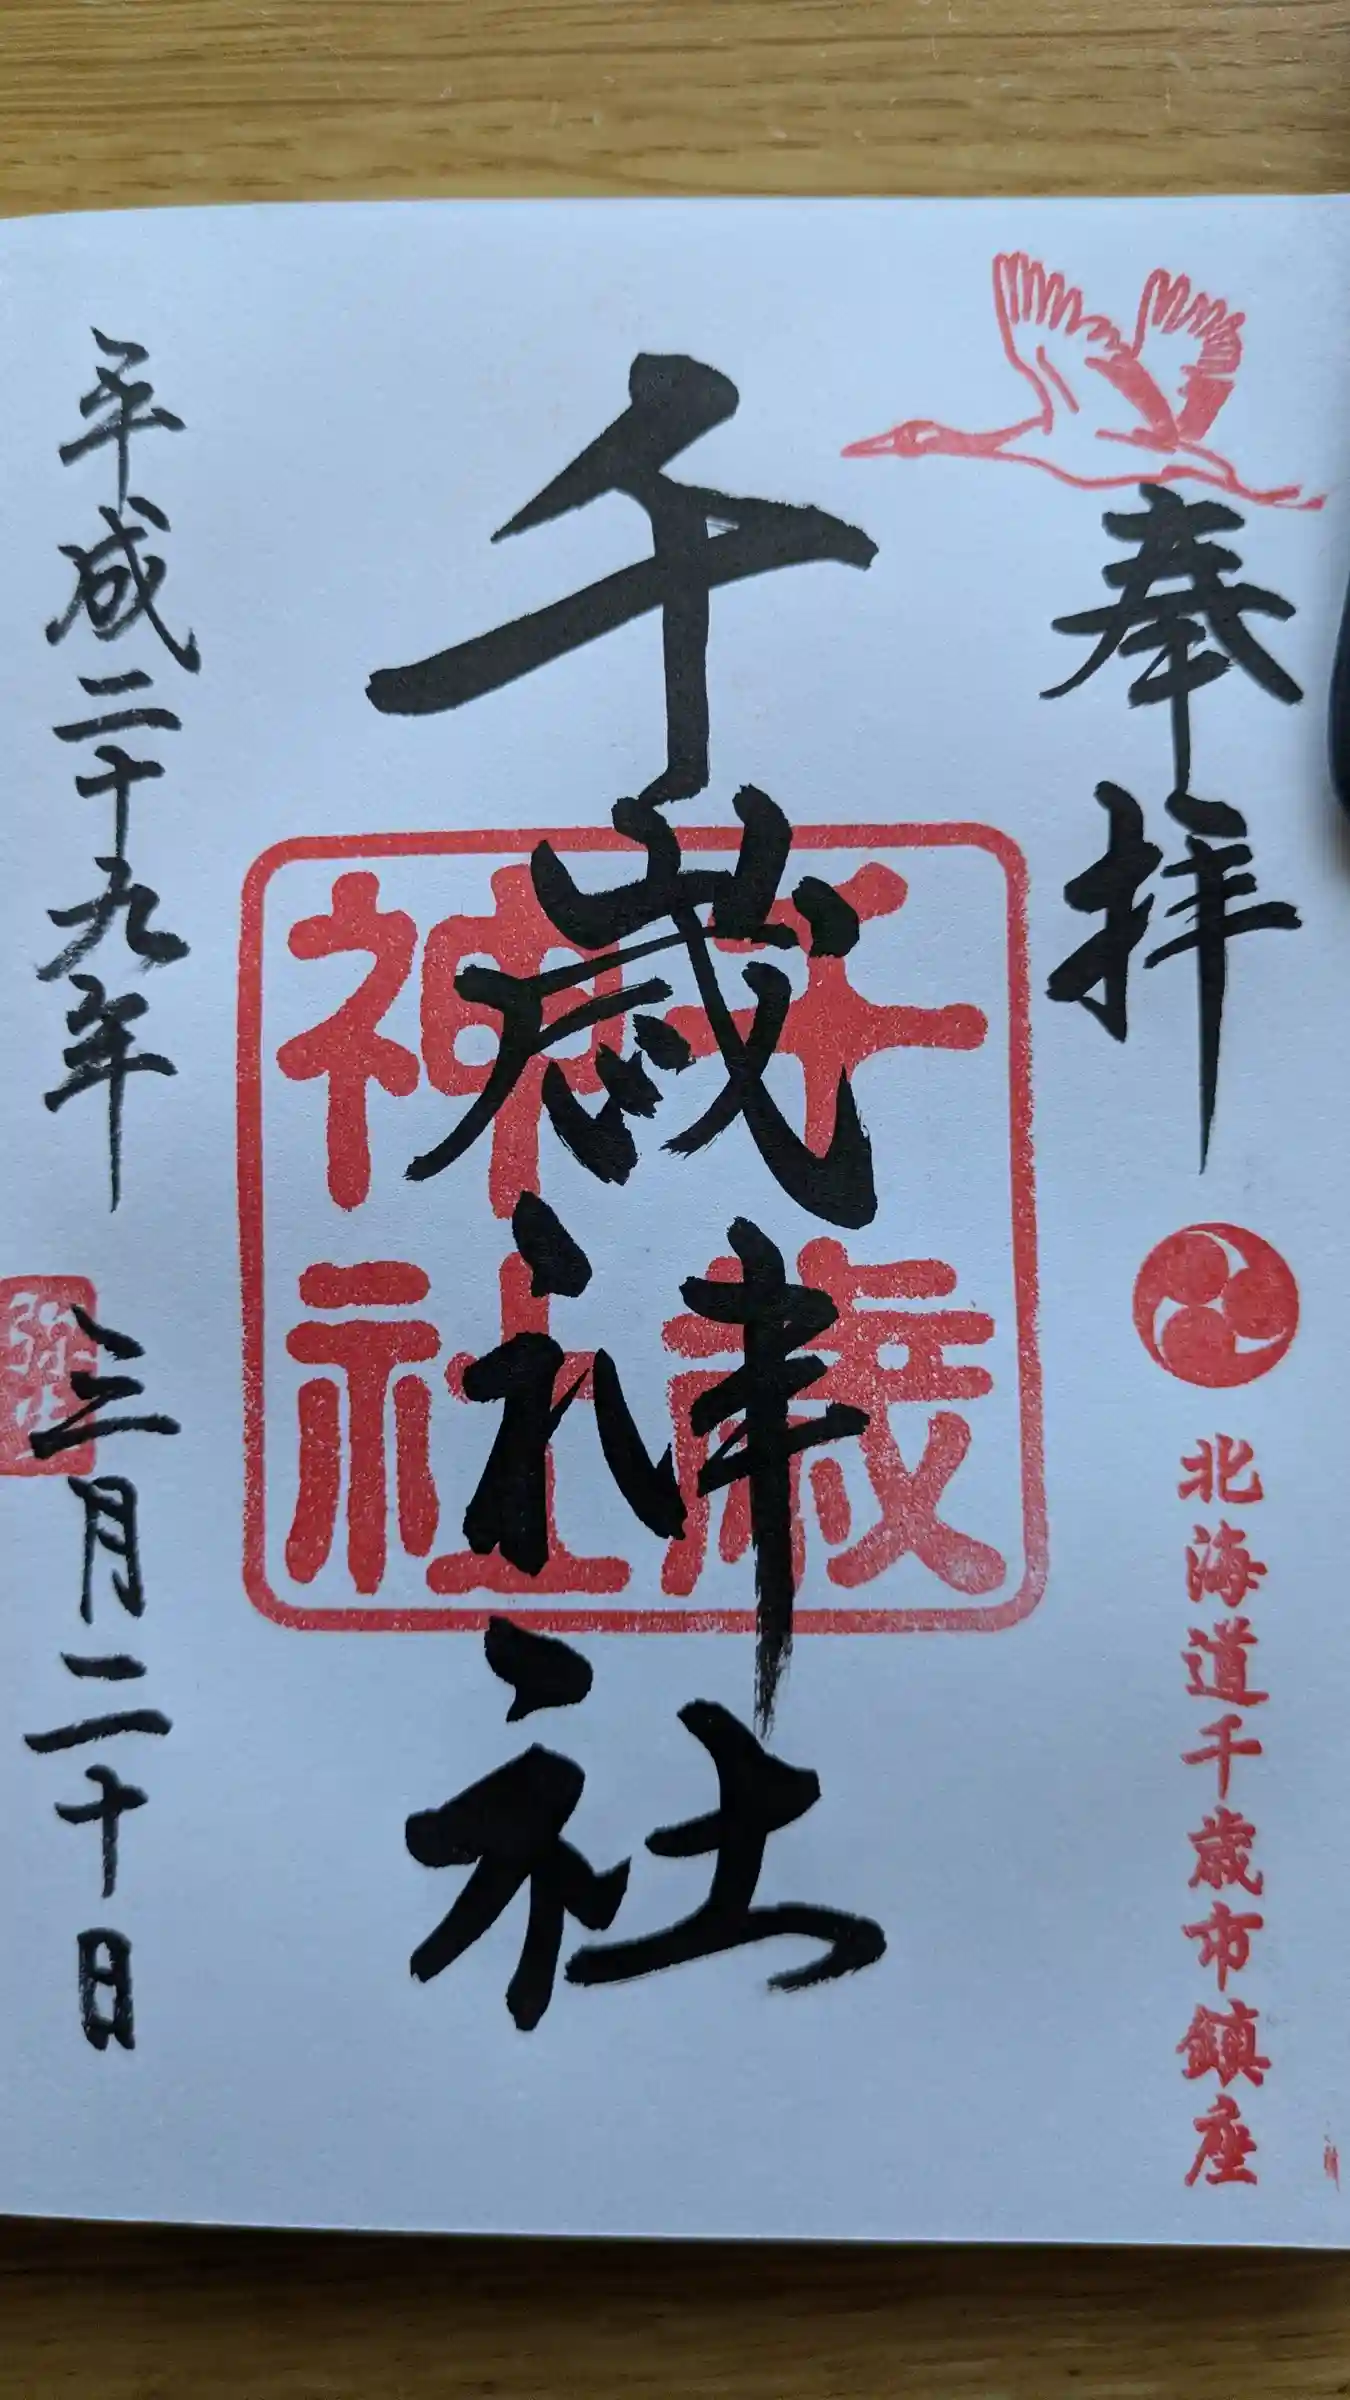 奉拝
北海道千歳市鎮座
千歳神社
千歳
神社
平成二十九年 三月二十日